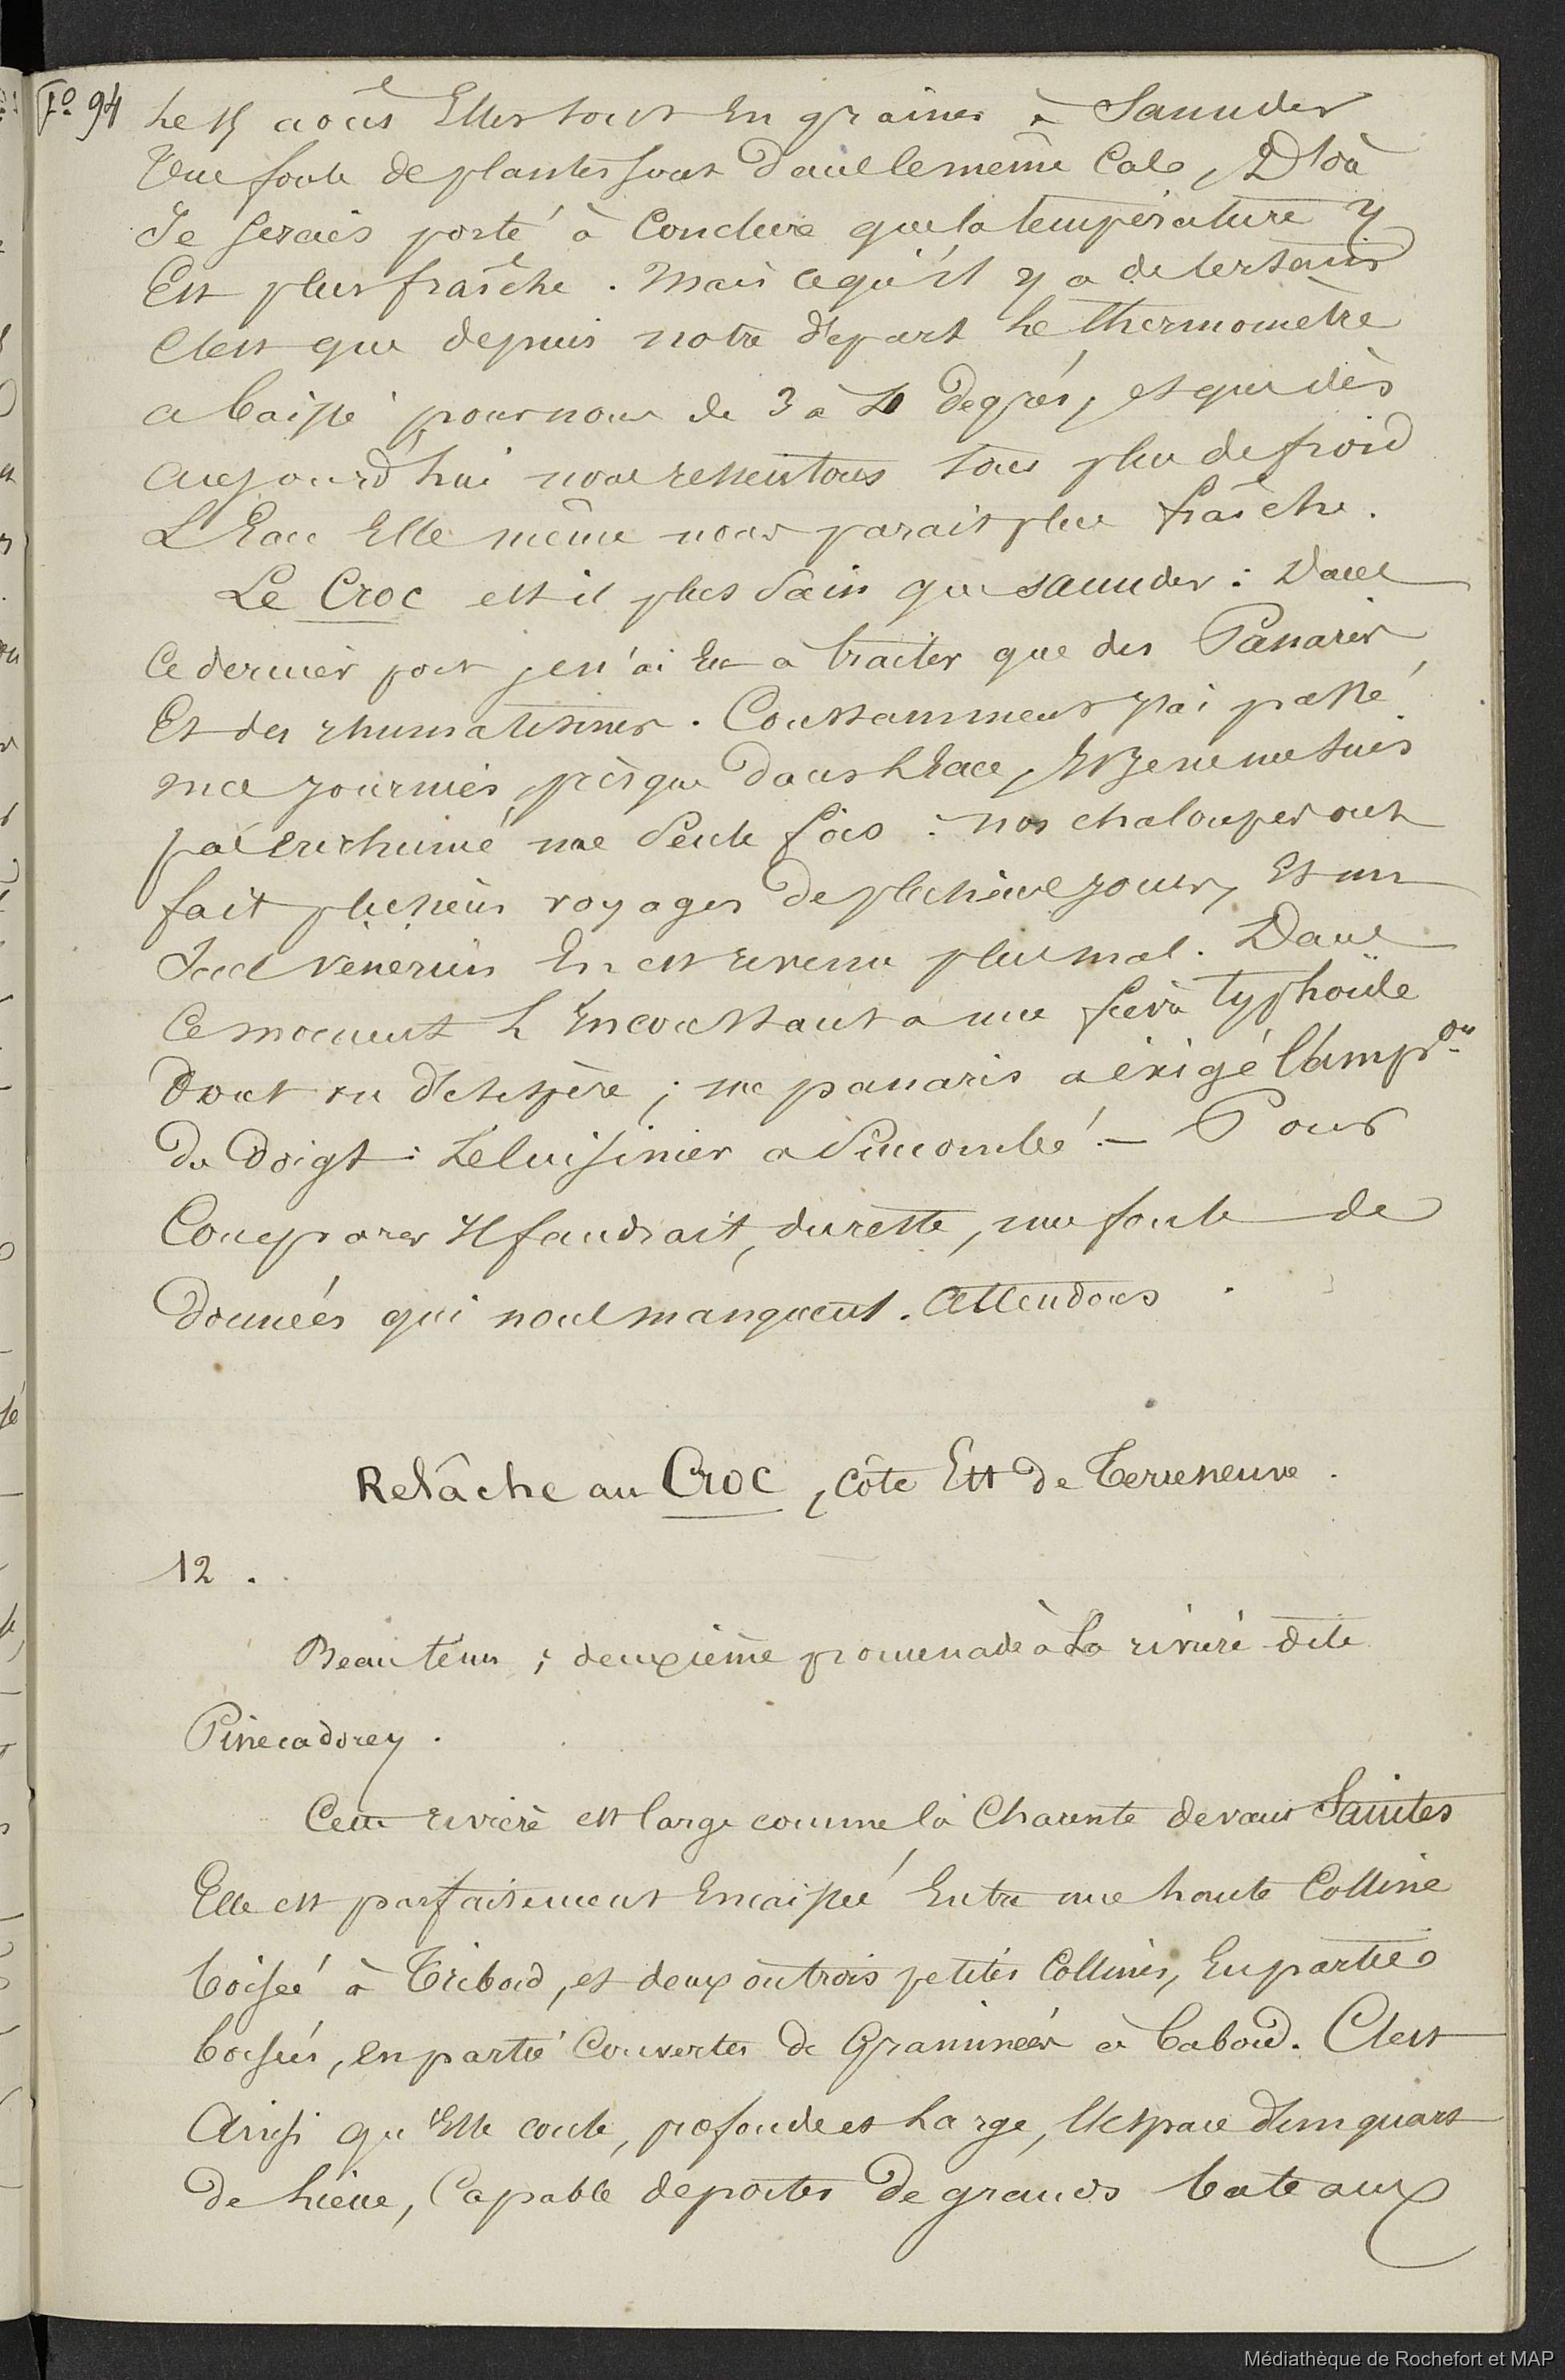 F° 94
Le 15 août Elles sont En graines à Saunders
Une foule de plantes sont dans le même Cas, D'où
Je serais porté à Conclure que la température y
Est plus fraîche. Mais ce qu'il y a de certain
C'est que depuis notre départ Le thermomètre
a baissé pour nous de 3 à 4 degrés, et que dès
aujourd'hui nous ressentons tous plus de froid
L'Eau Elle même nous parait plus fraîche.
Le Croc est il plus Sain que Saunders : Dans
Ce dernier port je n'ai Eu à traiter que des Panaris
Et des rhumatismes. Constamment j'ai passé
ma journée presque dans l'Eau, Et je ne me suis
pas enrhumé une Seule fois : nos chaloupes ont
fait plusieurs voyages de plusieurs jours, Et un
Seul vénérien En est revenu plus mal. Dans
Ce moment L' a une fièvre typhoïde
dont on désespère ; un panaris a exigé l'amp.on
du doigt : Le Cuisinier a Succombé. — Pour
Comparer Il faudrait, du reste, une foule de
Données qui nous manquent. Attendons
Relâche au Croc, Côte Est de Terreneuve.
12.
Beau tems ; deuxième promenade à La rivière dite
Pinecadorey.
Cette rivière est large comme la Charente devant Saintes
Elle est parfaitement Encaissée Entre une haute Colline
boisée à Tribord, et deux ou trois petites Collines, En partie
boisées, en partie Couvertes de Graminées à babord. C'est
Ainsi qu'Elle coule, profonde et Large, l'espace d'un quart
de Lieue, Capable de porter De grands bateaux
Médiathèque de Rochefort et MAP